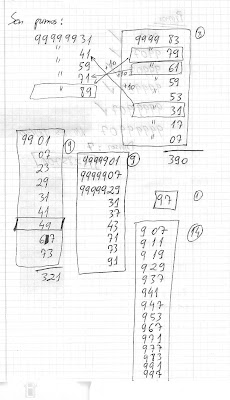 Son primos:
99999931
" 41
" 59
" 71
" 89
+10
+10
+10
9999 83
" 79
" 61
" 59
" 53
" 31
" 17
" 07
390
9901
07
23
29
31
41
49
67
73
321
9
9999901
9999907
9999929
31
37
43
71
73
91
9
97
907
911
919
929
937
941
947
953
967
971
977
983
991
997
14